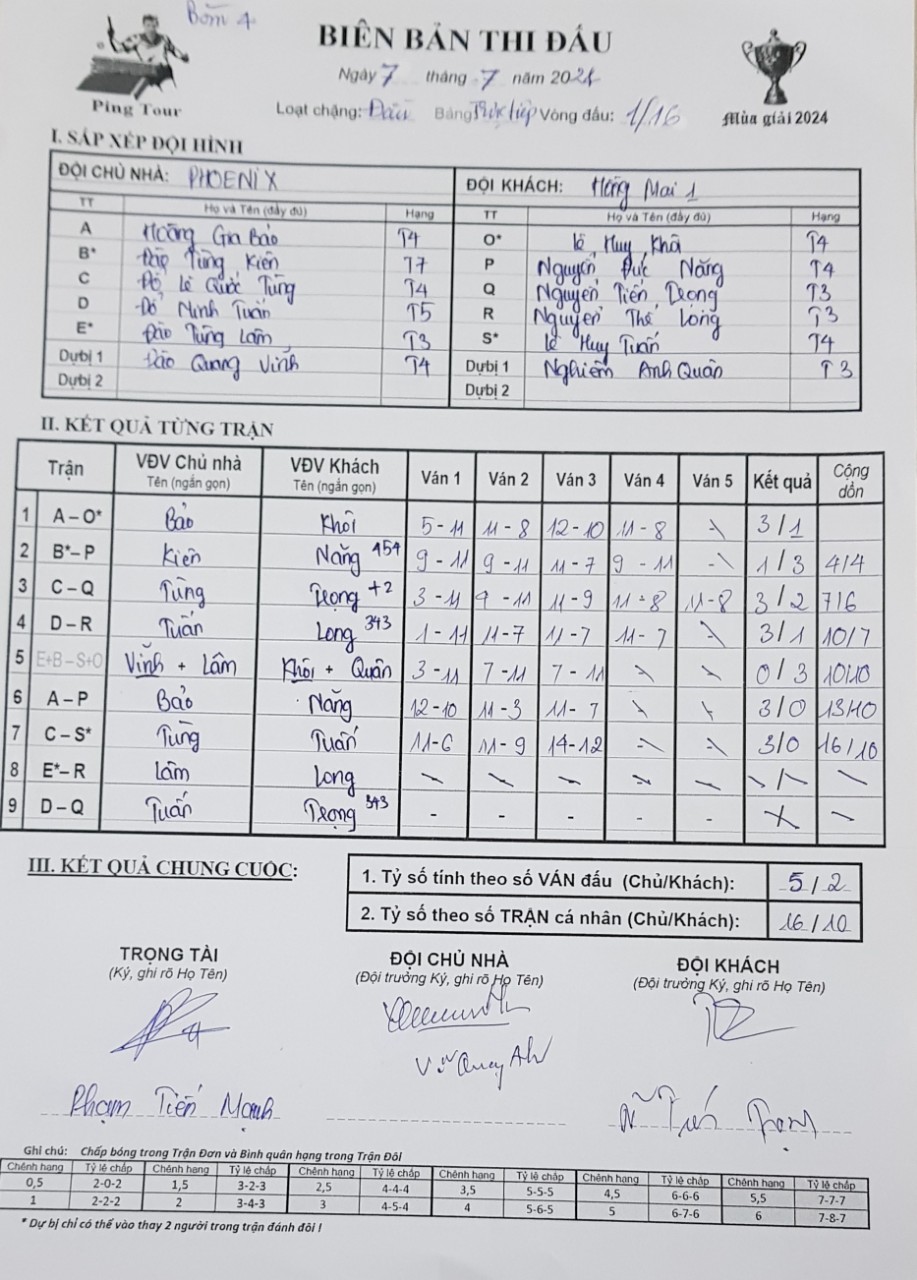 Bàn 4
BIÊN BẢN THI ĐẤU
Ngày 7 tháng 7 năm 2024
Ping Tour
Loạt chặng: Đấu Bảng Trực tiếp Vòng đấu: 1/16
Mùa giải 2024
I. SẮP XẾP ĐỘI HÌNH
ĐỘI CHỦ NHÀ: PHOENIX ĐỘI KHÁCH: Hồng Mai 1
TT Họ và Tên (đầy đủ) Hạng TT Họ và Tên (đầy đủ) Hạng
A Hoàng Gia Bảo T4 O* Lê Huy Khôi T4
B* Đào Tùng Kiên T7 P Nguyễn Đức Năng T4
C Đỗ Lê Quốc Tùng T4 Q Nguyễn Tiến Trọng T3
D Đỗ Ninh Tuấn T5 R Nguyễn Thế Long T3
E* Đào Tùng Lâm T3 S* Lê Huy Tuấn T4
Dự bị 1 Đào Quang Vinh T4 Dự bị 1 Nghiêm Anh Quân T3
Dự bị 2 Dự bị 2
II. KẾT QUẢ TỪNG TRẬN
Trận VĐV Chủ nhà Tên (ngắn gọn) VĐV Khách Tên (ngắn gọn) Ván 1 Ván 2 Ván 3 Ván 4 Ván 5 Kết quả Cộng dồn
1 A – O* Bảo Khôi 5 - 11 11 - 8 12 - 10 11 - 8 \ 3 / 1
2 B* – P Kiên Năng 454 9 - 11 9 - 11 11 - 7 9 - 11 - \ 1 / 3 4/4
3 C – Q Tùng Trọng +2 3 - 11 9 - 11 11 - 9 11 - 8 11 - 8 3 / 2 7/6
4 D – R Tuấn Long 343 1 - 11 11 - 7 11 - 7 11 - 7 \ 3 / 1 10/7
5 E+B – S+O Vinh + Lâm Khôi + Quân 3 - 11 7 - 11 7 - 11 \ \ 0 / 3 10/10
6 A – P Bảo Năng 12 - 10 11 - 3 11 - 7 \ \ 3 / 0 13/10
7 C – S* Tùng Tuấn 11 - 6 11 - 9 14 - 12 \ \ 3/0 16/10
8 E* – R Lâm Long \ \ \ \ \ \ / \ \
9 D – Q Tuấn Trọng 343 - - - - - X \
III. KẾT QUẢ CHUNG CUỘC:
1. Tỷ số tính theo số VÁN đấu (Chủ/Khách): 5 / 2
2. Tỷ số theo số TRẬN cá nhân (Chủ/Khách): 16 / 10
TRỌNG TÀI ĐỘI CHỦ NHÀ ĐỘI KHÁCH
(Ký, ghi rõ Họ Tên) (Đội trưởng Ký, ghi rõ Họ Tên) (Đội trưởng Ký, ghi rõ Họ Tên)
Phạm Tiến Mạnh
Ghi chú: Chấp bóng trong Trận Đơn và Bình quân hạng trong Trận Đôi
Chênh hạng Tỷ lệ chấp Chênh hạng Tỷ lệ chấp Chênh hạng Tỷ lệ chấp Chênh hạng Tỷ lệ chấp Chênh hạng Tỷ lệ chấp Chênh hạng Tỷ lệ chấp
0,5 2-0-2 1,5 3-2-3 2,5 4-4-4 3,5 5-5-5 4,5 6-6-6 5,5 7-7-7
1 2-2-2 2 3-4-3 3 4-5-4 4 5-6-5 5 6-7-6 6 7-8-7
* Dự bị chỉ có thể vào thay 2 người trong trận đánh đôi !